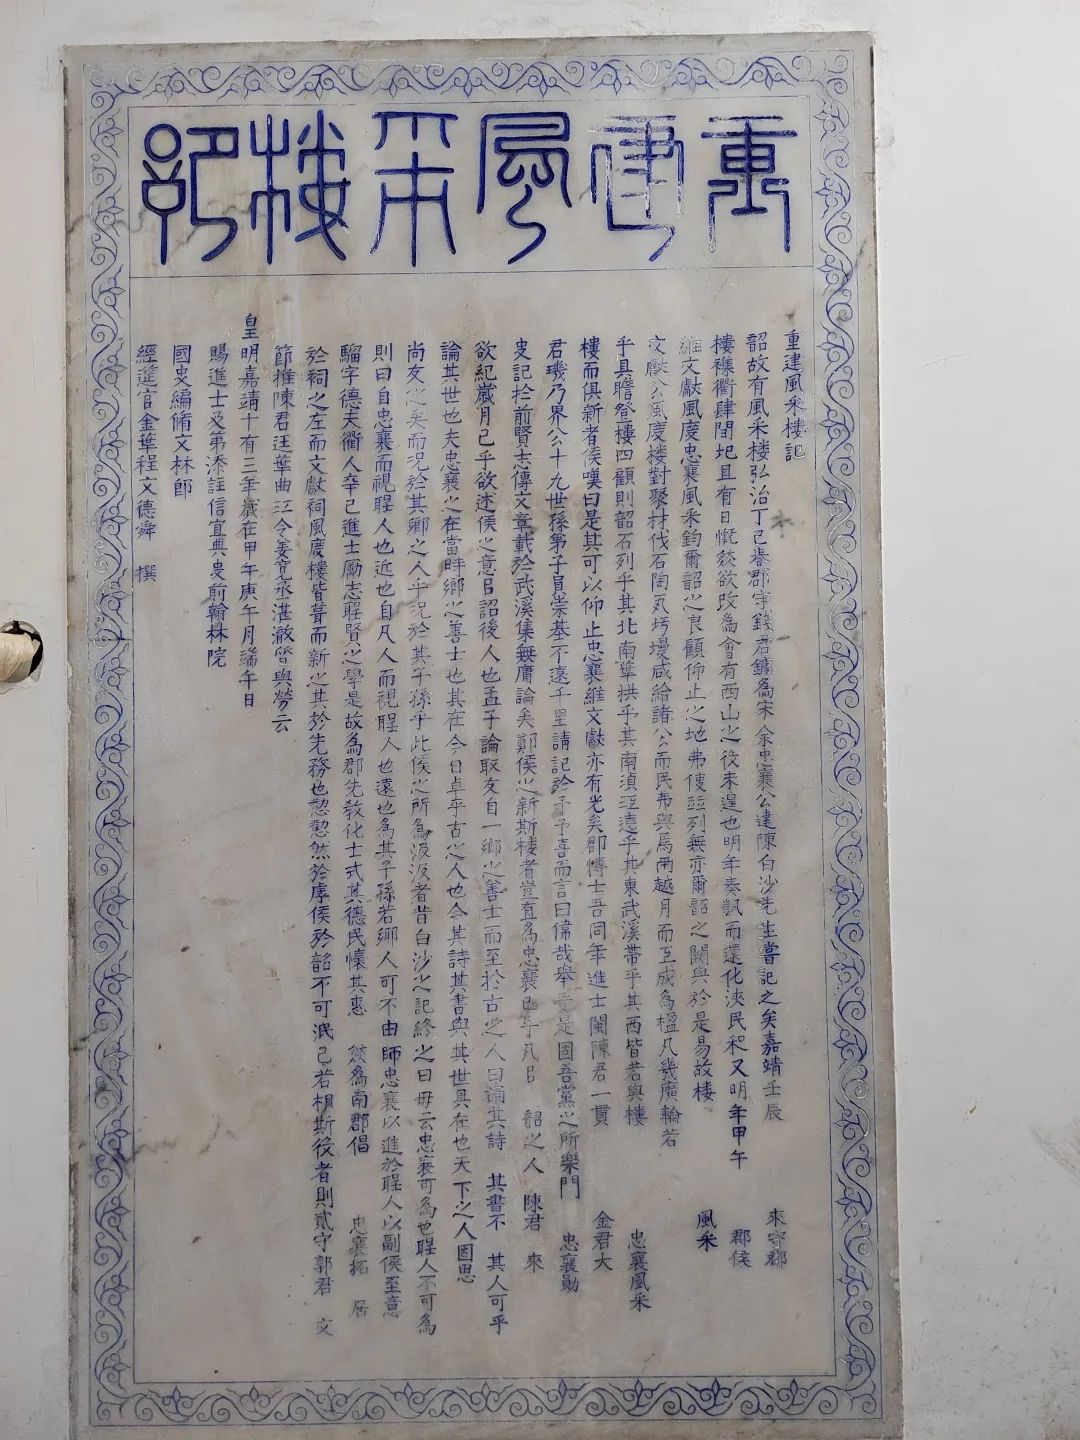 重建風采樓記
重建風采樓記
韶故有風采楼弘治丁巳春郡守錢君鏞為宋余忠襄公建陳白沙先生嘗記之矣嘉靖壬辰 來守郡
樓襍衢肆閈圮且有日慨然欲改為會有西山之役未遑也明年奏凱而還化浹民和又明年甲午 郡侯
維文獻風度忠襄風采鈞爾韶之良顧仰止之地弗使並列無亦爾韶之闕與於是易故楼 風采
文獻公風度楼對聚材伐石陶瓦圬墁咸給諸公而民弗與焉兩越月而亙成為楹凡幾廣輪若
乎具瞻登樓四顧則韶石列乎其北南華拱乎其南湞江遶乎其東武溪帶乎其西皆若與樓 忠襄風采
樓而俱新者侯嘆曰是其可以仰止忠襄維文獻亦有光矣郡博士吾同年進士閩陳君一貫 金君大
君璣乃畀公十九世孫弟子員崇基不遠千里請記於予予喜而言曰偉哉舉乎是固吾黨之所樂門 忠襄勛
史記於前賢志傳文章載於武溪集無庸論矣鄭侯之新斯楼者豈直為忠襄已乎凡㠯 韶之人 陳君 來
欲紀歲月已乎欲述侯之意㠯詔後人也孟子論取友自一鄉之善士而至於古之人曰論其詩 其書不 其人可乎
論其世也夫忠襄之在當時鄉之善士也其在今日卓乎古之人也今其詩其書與其世具在也天下之人固思
尚友之矣而況於其鄉之人乎況於其子孫乎此侯之所為汲汲者昔白沙之記終之曰毋云忠襄可為也聖人不可為
則曰自忠襄而視聖人也近也自凡人而視聖人也遠也為其子孫若鄉人可不由師忠襄以進於聖人以副侯至意
騮字德夫衢人辛巳進士勵志聖賢之學是故為郡先教化士式其德民懷其惠 然為南郡倡 忠襄拓 居
於祠之左而文獻祠風度樓皆葺而新之其於先務也惄惄然於虖侯於韶不可泯已若相斯役者則貳守郭君 文
節推陳君廷華曲江令姜寬丞湛澈晉與勞云
皇明嘉靖十有三年歲在甲午庚午月端午日
賜進士及第添註信宜典史前翰林院
國史編脩文林郎
經筵官金華程文德舜 撰